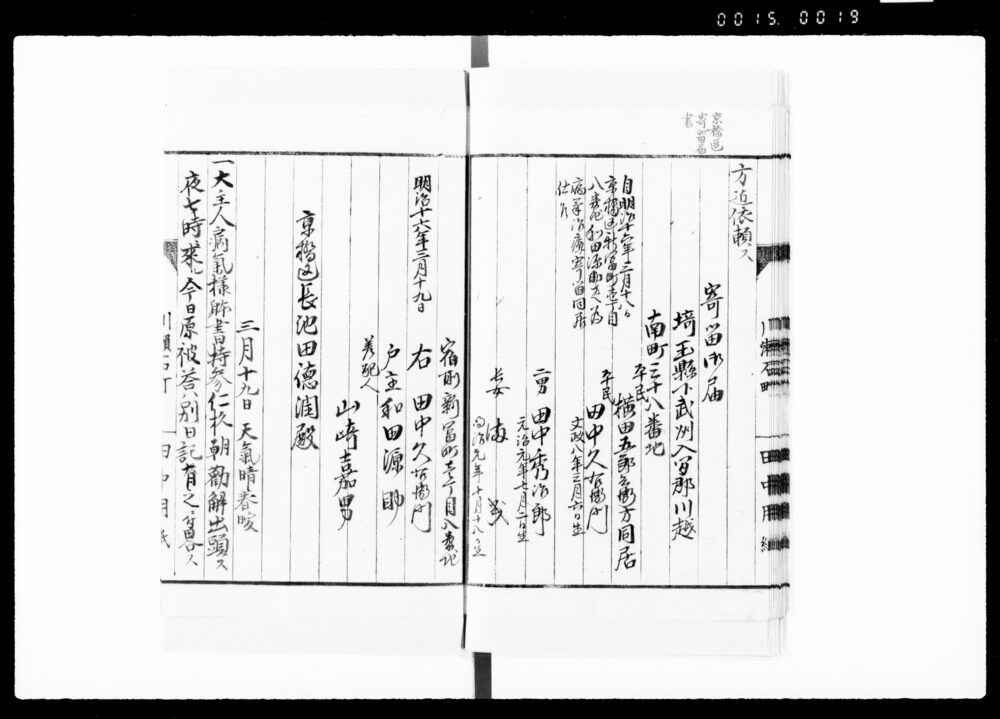 0015.0019
京橋區
寄留届
書
方迄依頼ス
寄留御届
埼玉縣下武州入間郡川越
南町三十八番地
平民 横田五郎兵衛方同居
平民 田中久右衛門
文政八年三月六日生
自明治十六年三月十八日
京橋區新富町壱丁目
八番地和田源助方ヘ為
病氣治療寄留同居
仕候
二男 田中秀次郎
元治元年七月二日生
長女 満氣
明治元年十月十八日生
宿所新富町壱丁目八番地
右 田中久右衛門
明治十六年三月十九日
戸主 和田源助
差配人
山崎喜嘉男
京橋區長池田徳潤殿
三月十九日 天氣晴春暖
一大主人病氣様躰書持参仁杉朝勸解出頭ス
夜七時來ル今日原被答ハ別日記有之
田中用紙